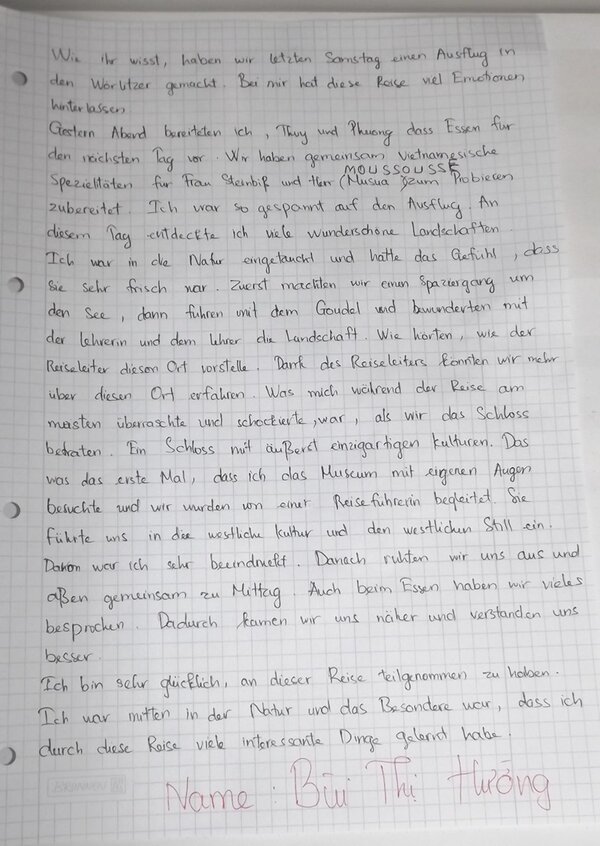 Wie ihr wisst, haben wir letzten Samstag einen Ausflug in
den Wörlitzer gemacht. Bei mir hat diese Reise viel Emotionen
hinterlassen.
Gestern Abend bereiteten ich, Thuy und Phuong dass Essen für
den nächsten Tag vor. Wir haben gemeinsam vietnamesische
MOUSSOUSSE
Spezielitäten für Frau Steinbiß und Herr (Musua) zum Probieren
zubereitet. Ich war so gespannt auf den Ausflug. An
diesem Tag entdeckte ich viele wunderschöne Landschaften.
Ich war in die Natur eingetaucht und hatte das Gefühl, dass
Sie sehr frisch war. Zuerst machten wir einen Spaziergang um
den See, dann fuhren mit dem Goudel und bewunderten mit
der Lehrerin und dem Lehrer die Landschaft. Wie hörten, wie der
Reiseleiter diesen Ort vorstelle. Dank des Reiseleiters konnten wir mehr
über diesen Ort erfahren. Was mich während der Reise am
meisten überraschte und schockierte, war, als wir das Schloss
betraten. Ein Schloss mit äußerst einzigartigen kulturen. Das
was das erste Mal, dass ich das Museum mit eigenen Augen
besuchte und wir wurden von einer Reiseführerin begleitet. Sie
führte uns in die westliche kultur und den westlichen Still ein.
Davon war ich sehr beeindruckt. Danach ruhten wir uns aus und
aßen gemeinsam zu Mittag. Auch beim Essen haben wir vieles
besprochen. Dadurch kamen wir uns näher und verstanden uns
besser.
Ich bin sehr glücklich, an dieser Reise teilgenommen zu haben.
Ich war mitten in der Natur und das Besondere war, dass ich
durch diese Reise viele interessante Dinge gelernt habe.
BRUNNEN
Name : Bùi Thị Hường